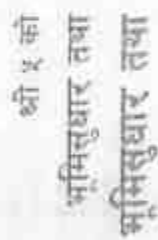 श्री ५ को
भूमिसुधार तथा
भूमिसुधार तथा